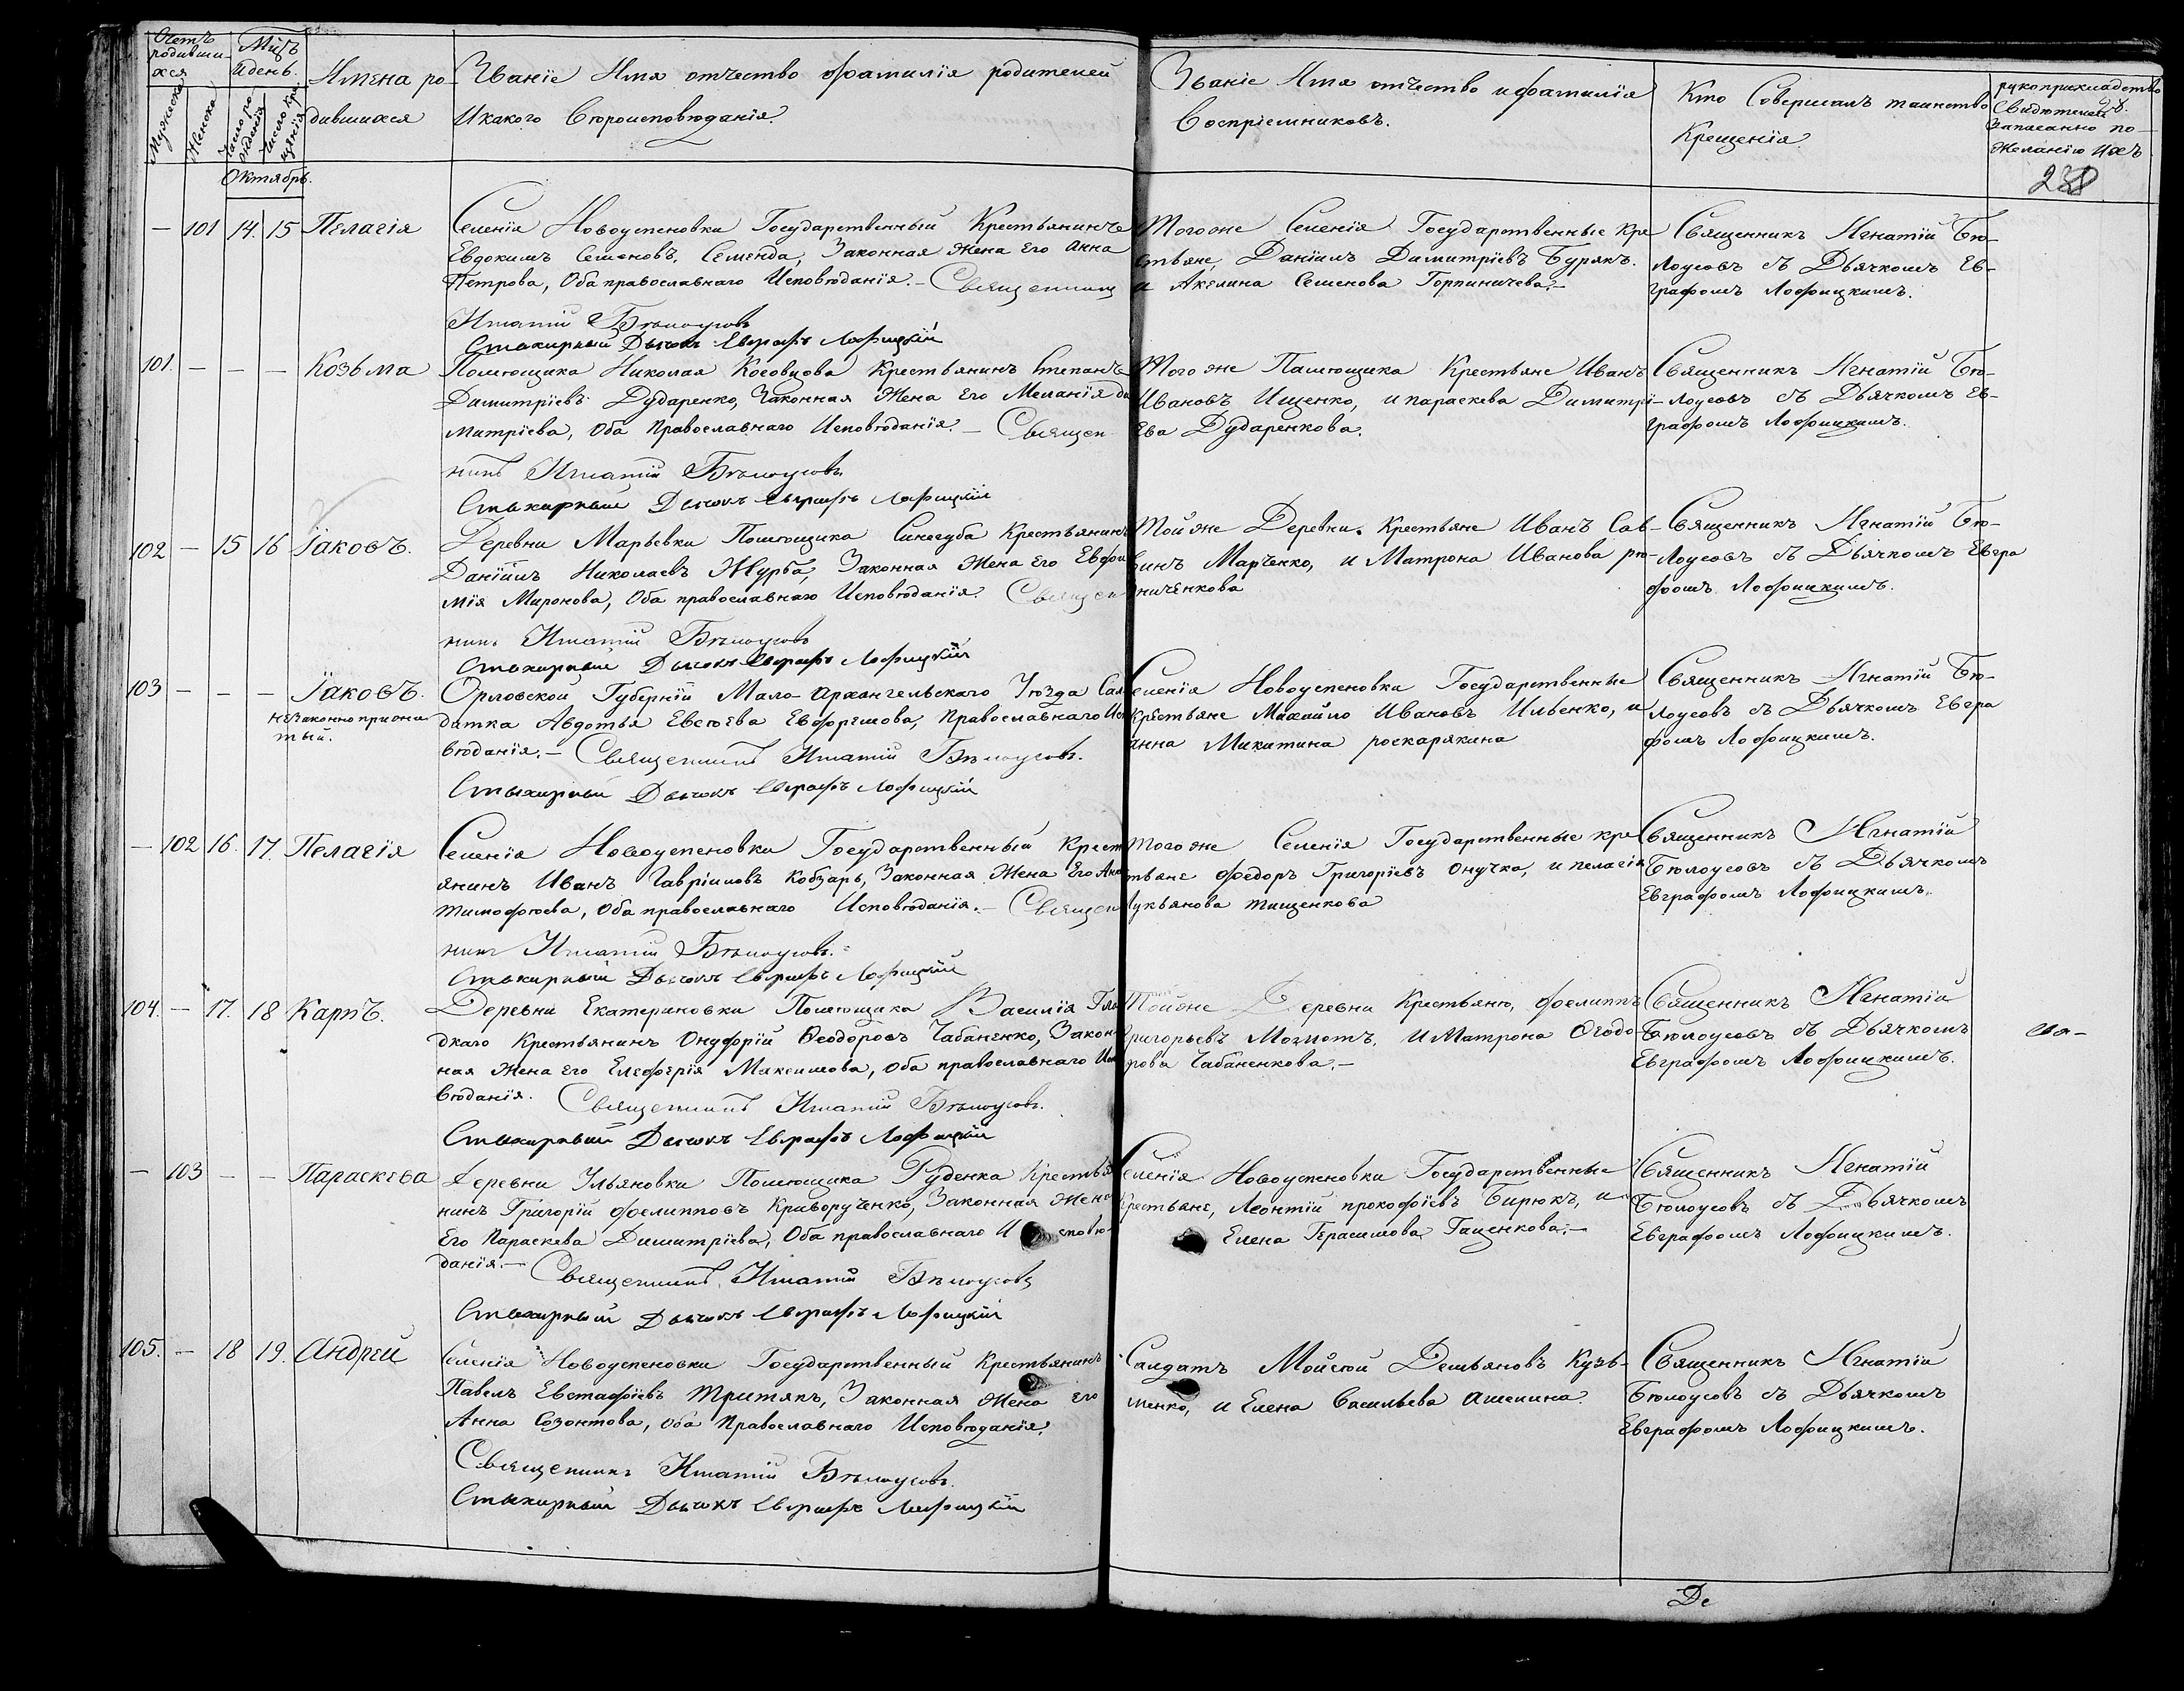 Счетъ
родивши-
хся
Мужеска
Женска
Мцъ
и день.
Число ро-
жденія
Число кре-
щенія
Октябрь.
Имена ро-
дившихся
Званіе Имя отчество фамилія родителей
И какого Вѣроисповѣданія.
Званіе Имя отчество и фамилія
Воспріемниковъ.
Кто Совершалъ таинство
Крещенія.
рукоприкладство
Свидѣтелей
Записанно по
Желанію Ихъ
— 101 14. 15 Пелагія
Селенія Новоуспеновки Государственный Крестьянинъ
Евдокимъ Семеновъ Семенда, Законная Жена Его Анна
Петрова, Оба православнаго Исповѣданія.— Священникъ
Игнатій Бѣлоусовъ
Стихирный Дьячокъ Евграфъ Лофицкій
Тогоже Селенія Государственные Кре
стьяне, Даніилъ Димитріевъ Бурякъ.
и Акелина Семенова Горпиничева.—
Священникъ Игнатій Бѣ-
лоусовъ съ Дьячкомъ Ев-
графомъ Лофицкимъ.
101. — — — Козьма
Помѣщика Николая Косовцова Крестьянинъ Степанъ
Димитріевъ Дударенко, Законная Жена Его Меланія Ди
митріева, Оба Православнаго Исповѣданія.— Священ
никъ Игнатій Бѣлоусовъ
Стихирный Дьячокъ Евграфъ Лофицкій
Того же Памѣщика Крестьяне Иванъ
Ивановъ Ищенко, и параскева Димитрі-
ева Дударенкова.
Священникъ Игнатій Бѣ-
лоусовъ съ Дьячкомъ Ев-
графомъ Лофицкимъ.
102 — 15 16 Іаковъ.
Деревни Марьевки Помѣщика Синегуба Крестьянинъ
Даніилъ Николаевъ Журба, Законная Жена Его Евфи
мія Миронова, Оба православнаго Исповѣданія Священ
никъ Игнатій Бѣлоусовъ
Стихирный Дьячокъ Евграфъ Лофицкій
Той же Деревни Крестьяне Иванъ Сав-
винъ Марченко, и Матрона Иванова рѣ-
ниченкова
Священникъ Игнатій Бѣ-
лоусовъ съ Дьячкомъ Евгра
фомъ Лофицкимъ.
103 — — — Іаковъ.
незаконно прижи
тый.
Орловской Губерній Мало-Архангельскаго Уѣзда Сал
датка Авдотья Евсѣева Ефремова, Православнаго Испо
вѣданія.— Священникъ Игнатій Бѣлоусовъ.
Стихирный Дьячокъ Евграфъ Лофицкій
Селенія Новоуспеновки Государственные
Крестьяне Михайло Ивановъ Ильенко, и
анна Микитина роскарякина
Священникъ Игнатій Бѣ-
лоусовъ съ Дьячкомъ Евгра
фомъ Лофицкимъ.
— 102 16. 17. Пелагія
Селенія Новоуспеновки Государственный Крест
янинъ Иванъ Гавріиловъ Кобзарь, Законная Жена Его Анна
Тимофѣева, Оба православнаго Исповѣданія.— Священ
никъ Игнатій Бѣлоусовъ.
Стихирный Дьячокъ Евграфъ Лофицкій
того же Селенія Государственные кре
стьяне федоръ Григоріевъ Онучко, и пелагія
Лукьянова тищенкова
Священникъ Игнатій
Бѣлоусовъ съ Дьячкомъ
Евграфомъ Лофицкимъ.
104. — 17. 18 Карпъ.
Деревни Екатериновки Помѣщика Василія Гла
дкаго Крестьянинъ Онуфрій Ѳеодоровъ Чабаненко, Закон
ная Жена его Елеферія Максимова, Оба православнаго Испо
вѣданія. Священникъ Игнатій Бѣлоусовъ.
Стихирный Дьячокъ Евграфъ Лофицкій
Тойже Деревни Крестьянѣ, филиппъ
Григорьевъ и Матрона Ѳеодо
рова Чабаненкова.—
Священникъ Игнатій
Бѣлоусовъ съ Дьячкомъ
Евграфомъ Лофицкимъ.
— 103 — — Параскева
Деревни Ульяновки Помѣщика Руденка Крестья
нинъ Григорій филипповъ Криворученко, Законная Жена
Его Параскева Димитріева, Оба православнаго Исповѣ-
данія.— Священникъ Игнатій Бѣлоусовъ
Стихирный Дьячокъ Евграфъ Лофицкій
Селенія Новоуспеновки Государственные
Крестьяне, Леонтій прокофіевъ Бирюкъ, и
Елена Герасимова Гащенкова.—
Священникъ Игнатій
Бѣлоусовъ съ Дьячкомъ
Евграфомъ Лофицкимъ.
105. — 18 19. Андрей
Селенія Новоуспеновки Государственный Крестьянинъ
Павелъ Евстафіевъ Тритякъ, Законная Жена его
Анна Созонтова, Оба Православнаго Исповѣданія.
Священникъ Игнатій Бѣлоусовъ.
Стихирный Дьячокъ Евграфъ Лофицкій
Салдатъ Мойсѣй Демьяновъ Кузь-
менко, и Елена Васильева
Священникъ Игнатій
Бѣлоусовъ съ Дьячкомъ
Евграфомъ Лофицкимъ.
Де